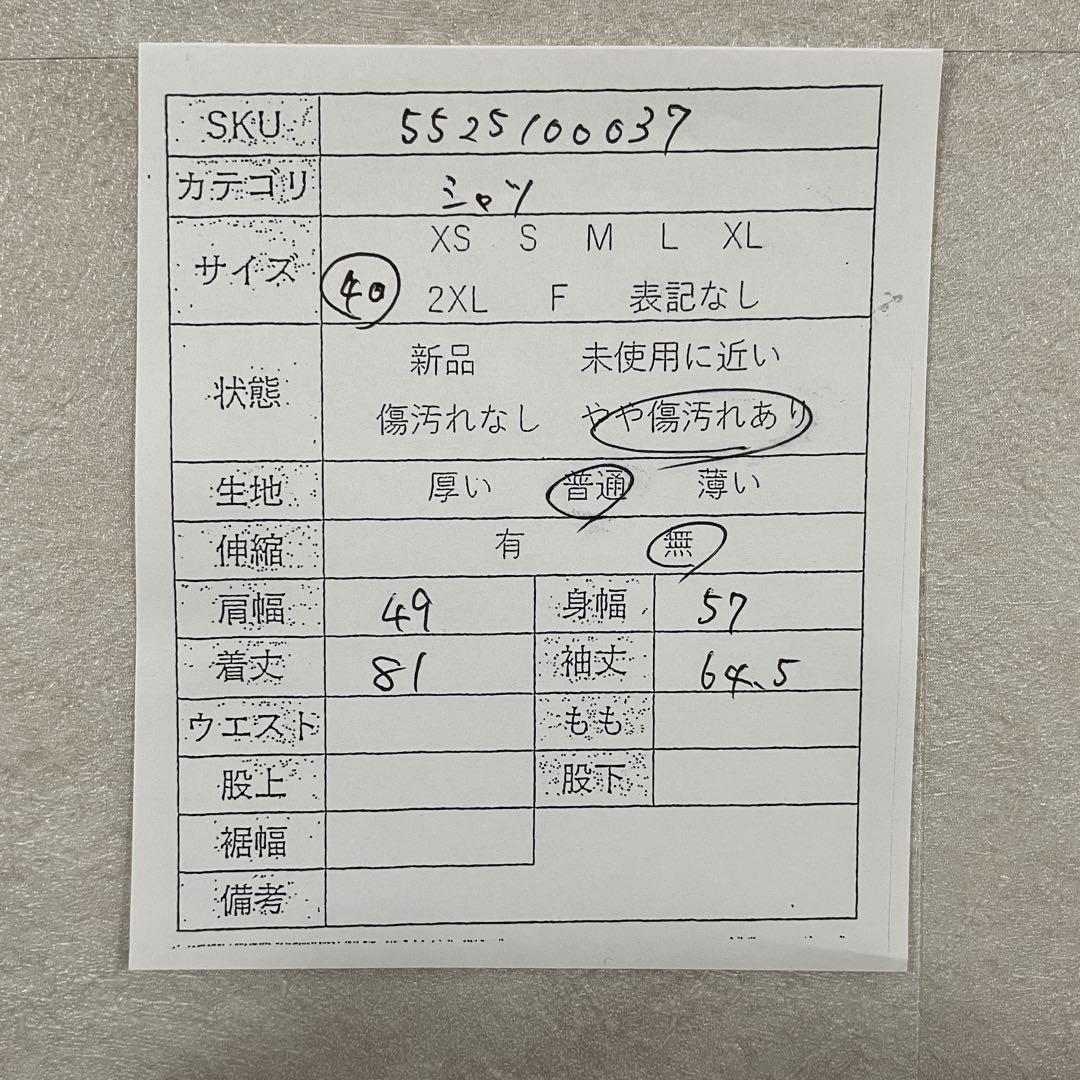 SKU 5525100037
カテゴリ シャツ
XS S M L XL
サイズ 40 2XL F 表記なし
新品 未使用に近い
状態
傷汚れなし やや傷汚れあり
生地 厚い 普通 薄い
伸縮 有 無
肩幅 49 身幅 57
着丈 81 袖丈 64.5
ウエスト もも
股上 股下
裾幅
備考